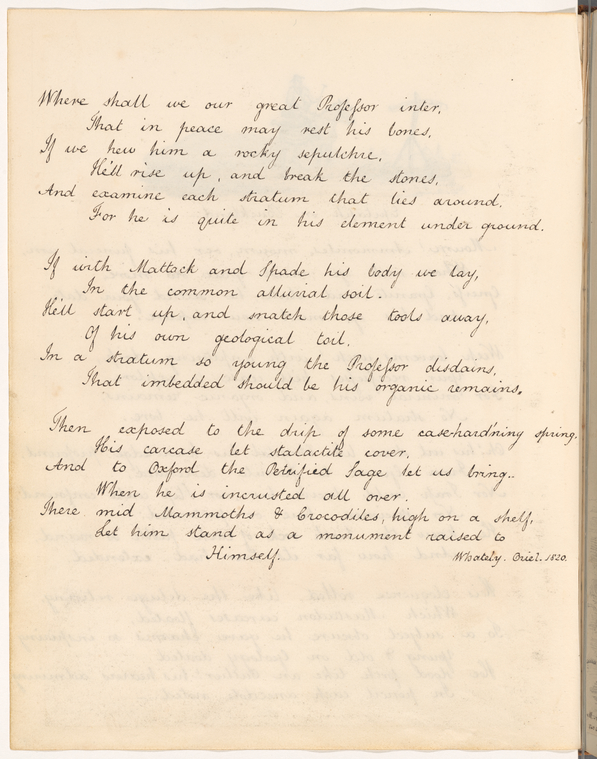 Where shall we our great Professor inter,
That in peace may rest his bones,
If we hew him a rocky sepulchre,
He'll rise up, and break the stones,
And examine each stratum that lies around,
For he is quite in his element under ground.
If with Mattock and Spade his body we lay,
In the common alluvial soil.
He'll start up, and snatch those tools away,
Of his own geological toil,
In a stratum so young the Professor disdains,
That imbedded should be his organic remains.
Then exposed to the drip of some case-hard'ning spring,
His carcase let stalactite cover,
And to Oxford the Petrified Sage let us bring..
When he is incrusted all over.
There mid Mammoths & Crocodiles, high on a shelf,
Let him stand as a monument raised to
Himself.
Whately. Oriel. 1820.